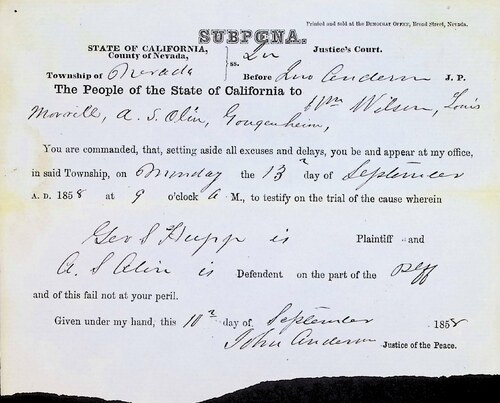 Printed and sold at the DEMOCRAT OFFICE, Broad Street, Nevada.
SUBPŒNA.
STATE OF CALIFORNIA, County of Nevada, } ss. In Justice's Court.
Township of Nevada Before Jno Anderson J. P.
The People of the State of California to Wm Wilson, Louis
A. S. Olin, Gougenheim,
You are commanded, that, setting aside all excuses and delays, you be and appear at my office,
in said Township, on Monday the 13 day of September
A. D. 1858 at 9 o'clock A M., to testify on the trial of the cause wherein
Geo S Hupp is Plaintiff and
A. S Olin is Defendent on the part of the Plff
and of this fail not at your peril.
Given under my hand, this 10 day of September 1858
John Anderson Justice of the Peace.